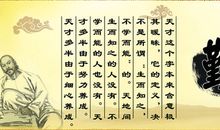 天才这个字本来含意极
其暧昧,它的定义,决
不是所谓:“生而知之,
不学而能”的。天地间
生而知之的人没有,不
学而能的人也没有。
天才多半由于努力养成。
天才多半由于细心养成。